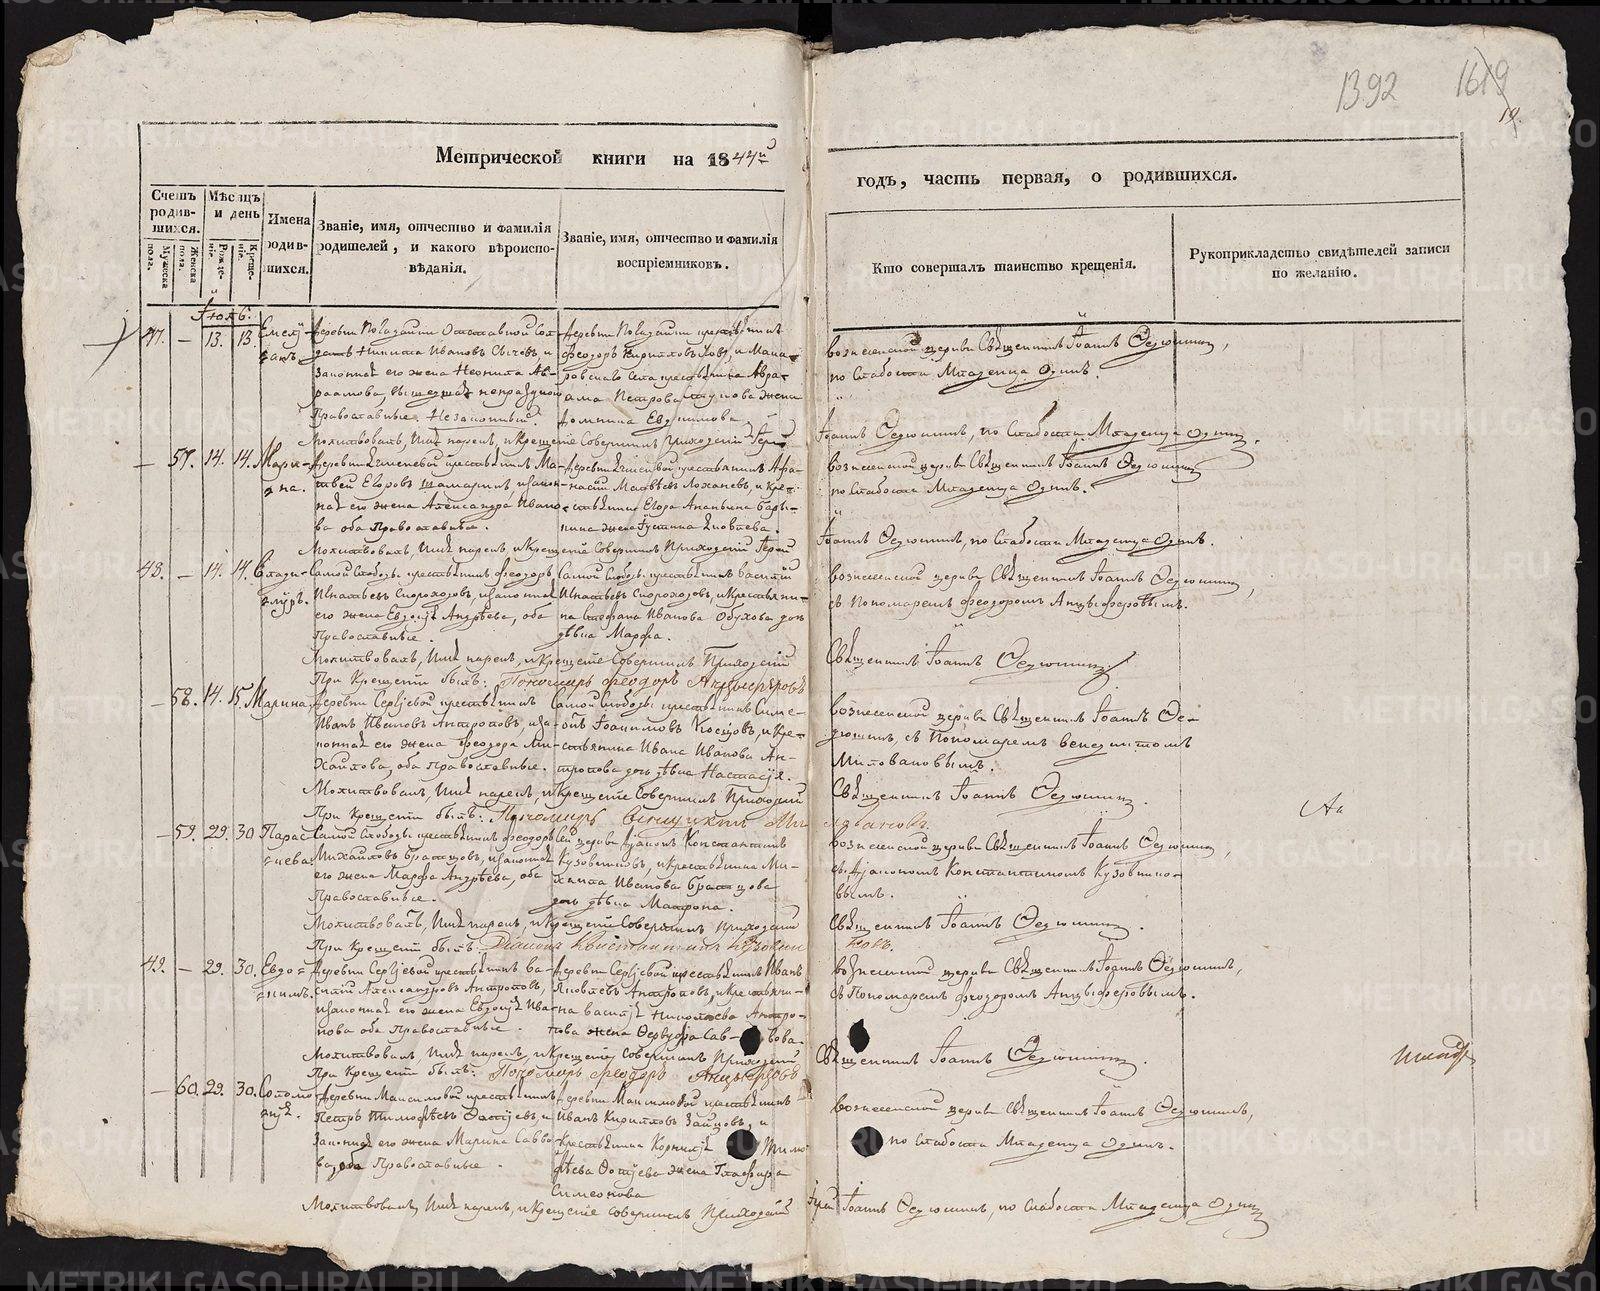 1392 1619
19.
Метрической книги на 1844й
годъ, часть первая, о родившихся.
Счетъ родив- шихся.
Мужеска пола.
Женска пола.
Мѣсяцъ и день
Рожде- нія. и
Креще- нія.
Имена родив- шихся.
Званіе, имя, отчество и фамилія родителей, и какого вѣроиспо- вѣданія.
Званіе, имя, отчество и фамилія воспріемниковъ.
Кто совершалъ таинство крещенія.
Рукоприкладство свидѣтелей записи по желанію.
47. — 13. 13.
Деревни Отставной Сол-
датъ Никита Ивановъ и
законная его жена Ав-
раамова,
Православные. Незаконный
Деревни крестьянинъ
Феодоръ Кирилловъ и
села крестьянина Авра-
ама Петрова жена
Домнина Евдокимова
вознесенской церкви Священникъ Іоаннъ Федюшинъ,
по слабости Младенца одинъ.
Молитвовалъ, Имя нарекъ, и Крещеніе Совершилъ Приходскій Іерей
Іоаннъ Федюшинъ, по слабости Младенца одинъ.
— 57. 14. 14. Мари-
на.
Деревни крестьянинъ Ма-
твей Егоровъ и закон-
ная его жена Александра Ивано-
ва оба Православные.
Деревни крестьянинъ Афа-
насій Матвѣевъ и кре-
стьянина Егора Ананьина
жена Іустина
вознесенской церкви Священникъ Іоаннъ Федюшинъ
по слабости Младенца одинъ.
Молитвовалъ, Имя нарекъ, и Крещеніе Совершилъ Приходскій Іерей
Іоаннъ Федюшинъ, по слабости Младенца одинъ.
48. — 14. 14. Влади-
міръ.
Самой Слободы крестьянинъ Феодоръ
Игнатьевъ Скороходовъ, и законная
его жена Евдокія Андрѣева, оба
Православные.
Самой Слободы крестьянинъ Василій
Игнатьевъ Скороходовъ, и крестьяни-
на Стефана Иванова Обухова дочь
дѣвица Марфа.
вознесенской церкви Священникъ Іоаннъ Федюшинъ,
съ Пономаремъ Феодоромъ Анцыферовымъ.
Молитвовалъ, Имя нарекъ, и Крещеніе Совершилъ Приходскій
Священникъ Іоаннъ Федюшинъ.
При Крещеніи былъ: Пономарь Феодоръ Анцыферовъ
— 58. 14. 15. Марина.
Деревни Сергѣевой крестьянинъ
Иванъ Ивановъ Антроповъ, и за-
конная его жена Феодора Ми-
хайлова, оба Православные.
Самой Слободы крестьянинъ Симе-
онъ Іоакимовъ Косцовъ, и кре-
стьянина Ивана Иванова Ан-
тропова дочь дѣвица Настасія.
вознесенской церкви Священникъ Іоаннъ Фе-
дюшинъ, съ Пономаремъ Венедиктомъ
Миловановымъ.
Молитвовалъ, Имя нарекъ, и Крещеніе Совершилъ Приходскій
Священникъ Іоаннъ Федюшинъ.
При Крещеніи былъ: Пономарь Венедиктъ Ми
ловановъ.
— 59. 29. 30 Парас-
кева
Самой Слободы крестьянинъ Феодоръ
Михайловъ Братцовъ, и законная
его жена Марфа Андрѣева, оба
Православные.
сей церкви Діаконъ Константинъ
Кузовниковъ, и крестьянина Ми-
хаила Иванова Братцова
дочь дѣвица Матрона.
вознесенской церкви Священникъ Іоаннъ Федюшинъ,
съ Діакономъ Константиномъ Кузовнико-
вымъ.
Молитвовалъ, Имя нарекъ, и Крещеніе Совершилъ Приходскій
Священникъ Іоаннъ Федюшинъ.
При Крещеніи былъ: Діаконъ Константинъ Кузовни
ковъ.
49. — 29. 30. Евдо-
кимъ.
Деревни Сергѣевой крестьянинъ Ва-
силій Александровъ Антроповъ,
и законная его жена Евдокія Ива-
нова оба Православные.
Деревни Сергѣевой крестьянинъ Иванъ
Яковлевъ Антроповъ, и крестьяни-
на Василія Николаева Антро-
пова жена Сав- вова.
вознесенской церкви Священникъ Іоаннъ Федюшинъ,
съ Пономаремъ Феодоромъ Анцыферовымъ.
Молитвовалъ, Имя нарекъ, и Крещеніе Совершилъ Приходскій
Священникъ Іоаннъ Федюшинъ.
При Крещеніи былъ: Пономарь Феодоръ Анцыферовъ
— 60. 29. 30. Соломо
нія.
Деревни Максимовой крестьянинъ
Петръ Тимофѣевъ и
законная его жена Марина Савво-
ва, оба Православные.
Деревни Максимовой крестьянинъ
Иванъ Кирилловъ Зайцовъ, и
крестьянина Корнилія Тимо
фѣева жена Глафира
Симеонова
вознесенской церкви Священникъ Іоаннъ Федюшинъ,
по слабости Младенца одинъ.
Молитвовалъ, Имя нарекъ, и Крещеніе совершилъ Приходскій
Іерей Іоаннъ Федюшинъ, по слабости Младенца одинъ
METRIKI.GASO-URAL.RU